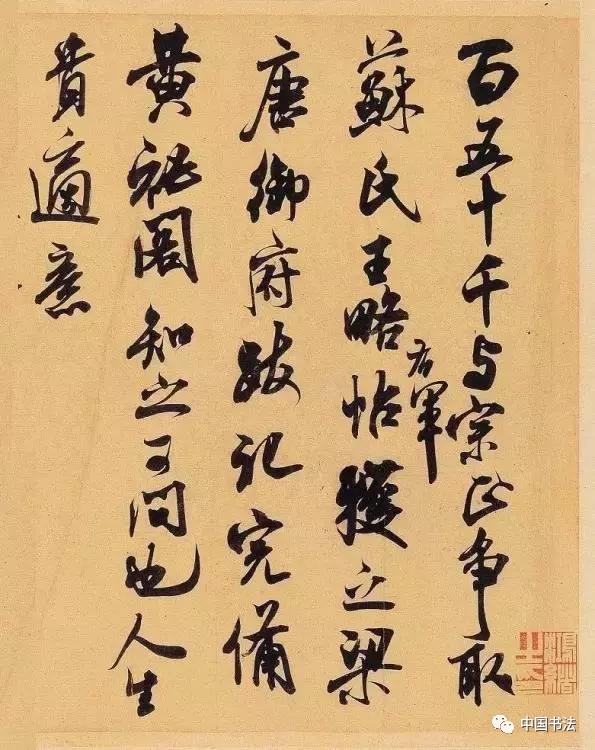 百五十千与宗正争取
蘇氏王略帖右軍獲之梁
唐御府跋記完備
黄祕閣知之可問也人生
貴適意
中国书法